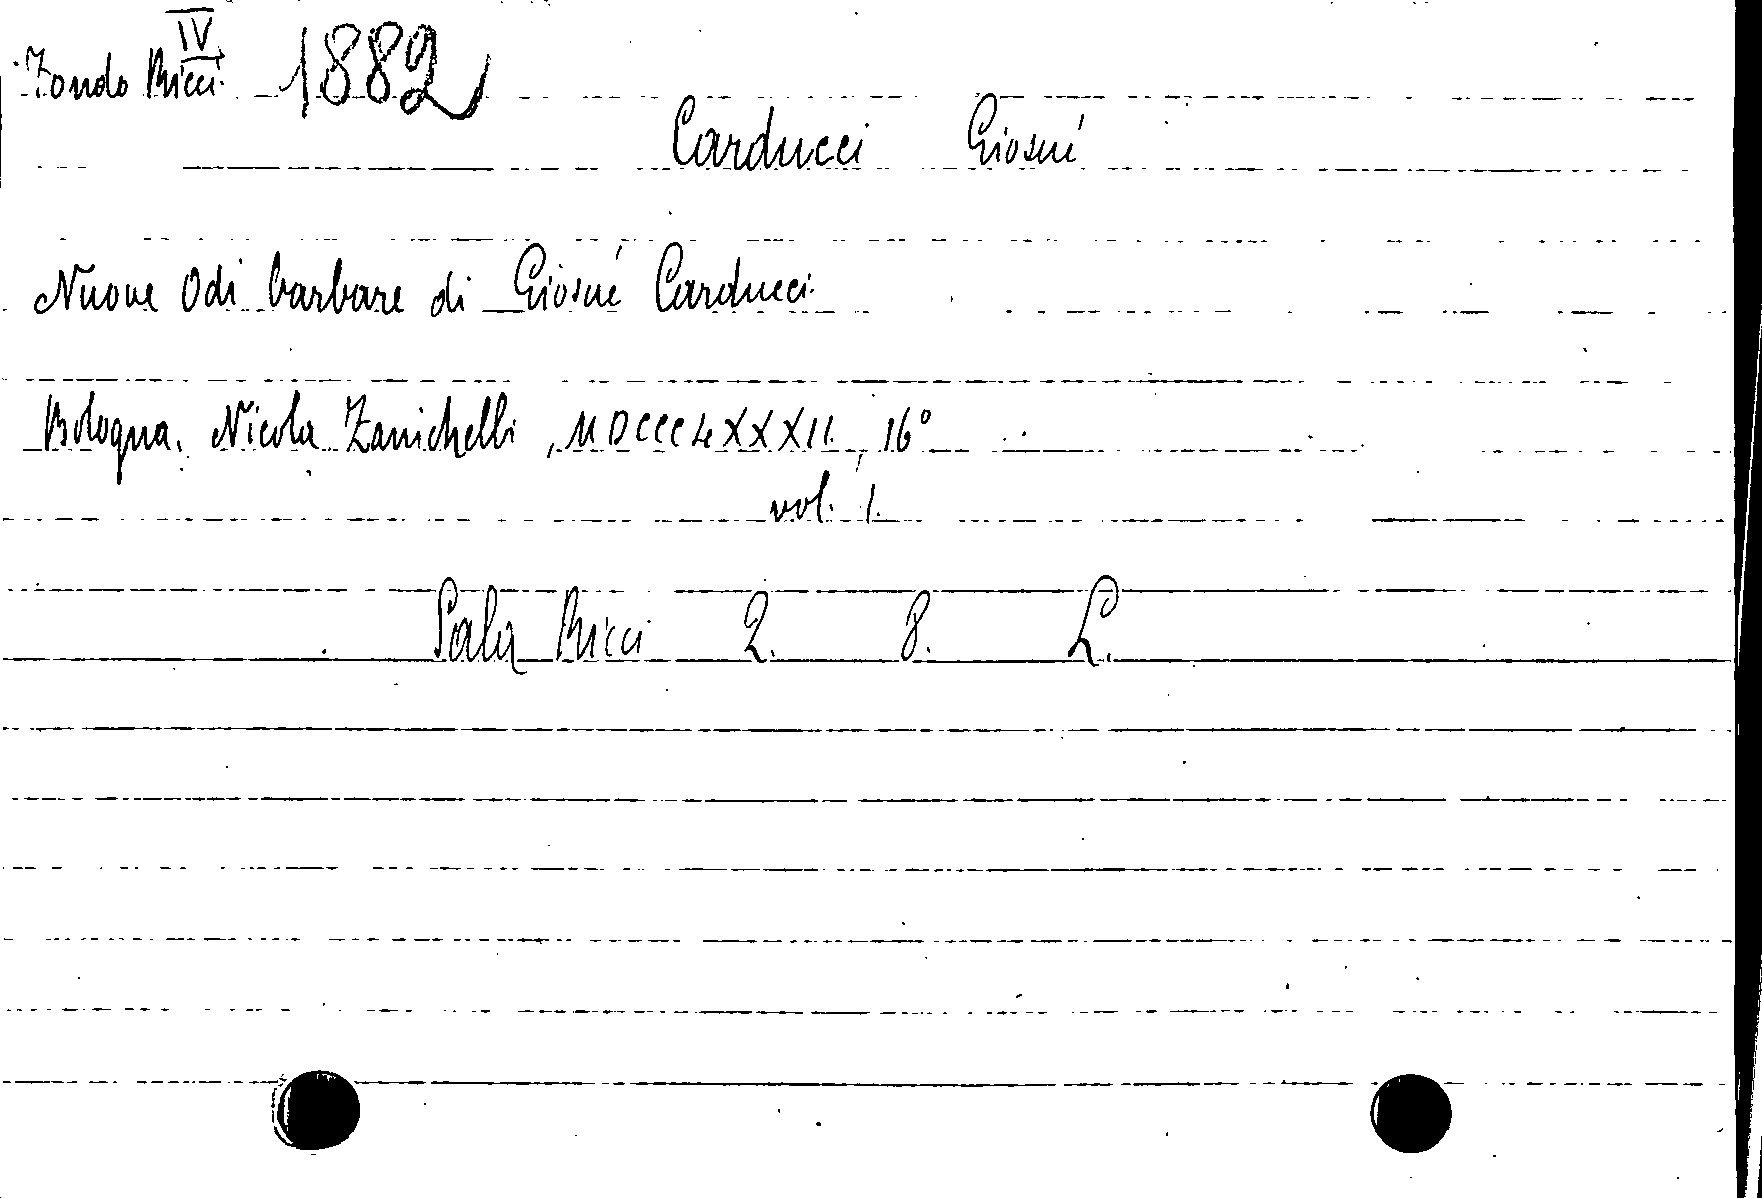 IV
Fondo Ricci. 1882
Carducci Giosué
Nuove Odi barbare di Giosué Carducci.
Bologna, Nicola Zanichelli, MDCCCLXXXII, 16°
vol. 1.
Sala Ricci 2. 8. L.